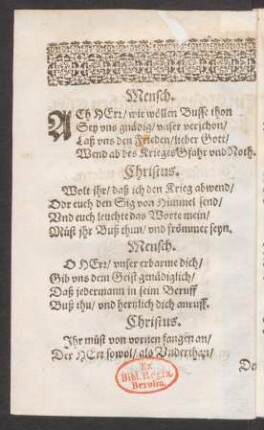 Mensch.
ACh HErr/ wir wöllen Busse thon
Sey vns gnädig/ vnser verschon/
Laß vns den Frieden/ lieber Gott/
Wend ab des Kriegis Gfahr vnd Noth.
Christus.
Wolt ihr/ daß ich den Krieg abwend/
Vor euch den Sig von Himmel send/
Vnd euch leuchte das Worte mein/
Müßt ihr Buß thun/ vnd frömmer seyn.
Mensch.
O HErr/ vnser erbarme dich/
Gib vns dein Geist genädiglich/
Daß jedermann in seim Beruff
Buß thu/ vnd hertzlich dich anruff.
Christus.
Ihr müst von vornen fangen an/
Der HErr sowol/ als Vnderthan/
Ex
Bibl. Regia
Berolin.